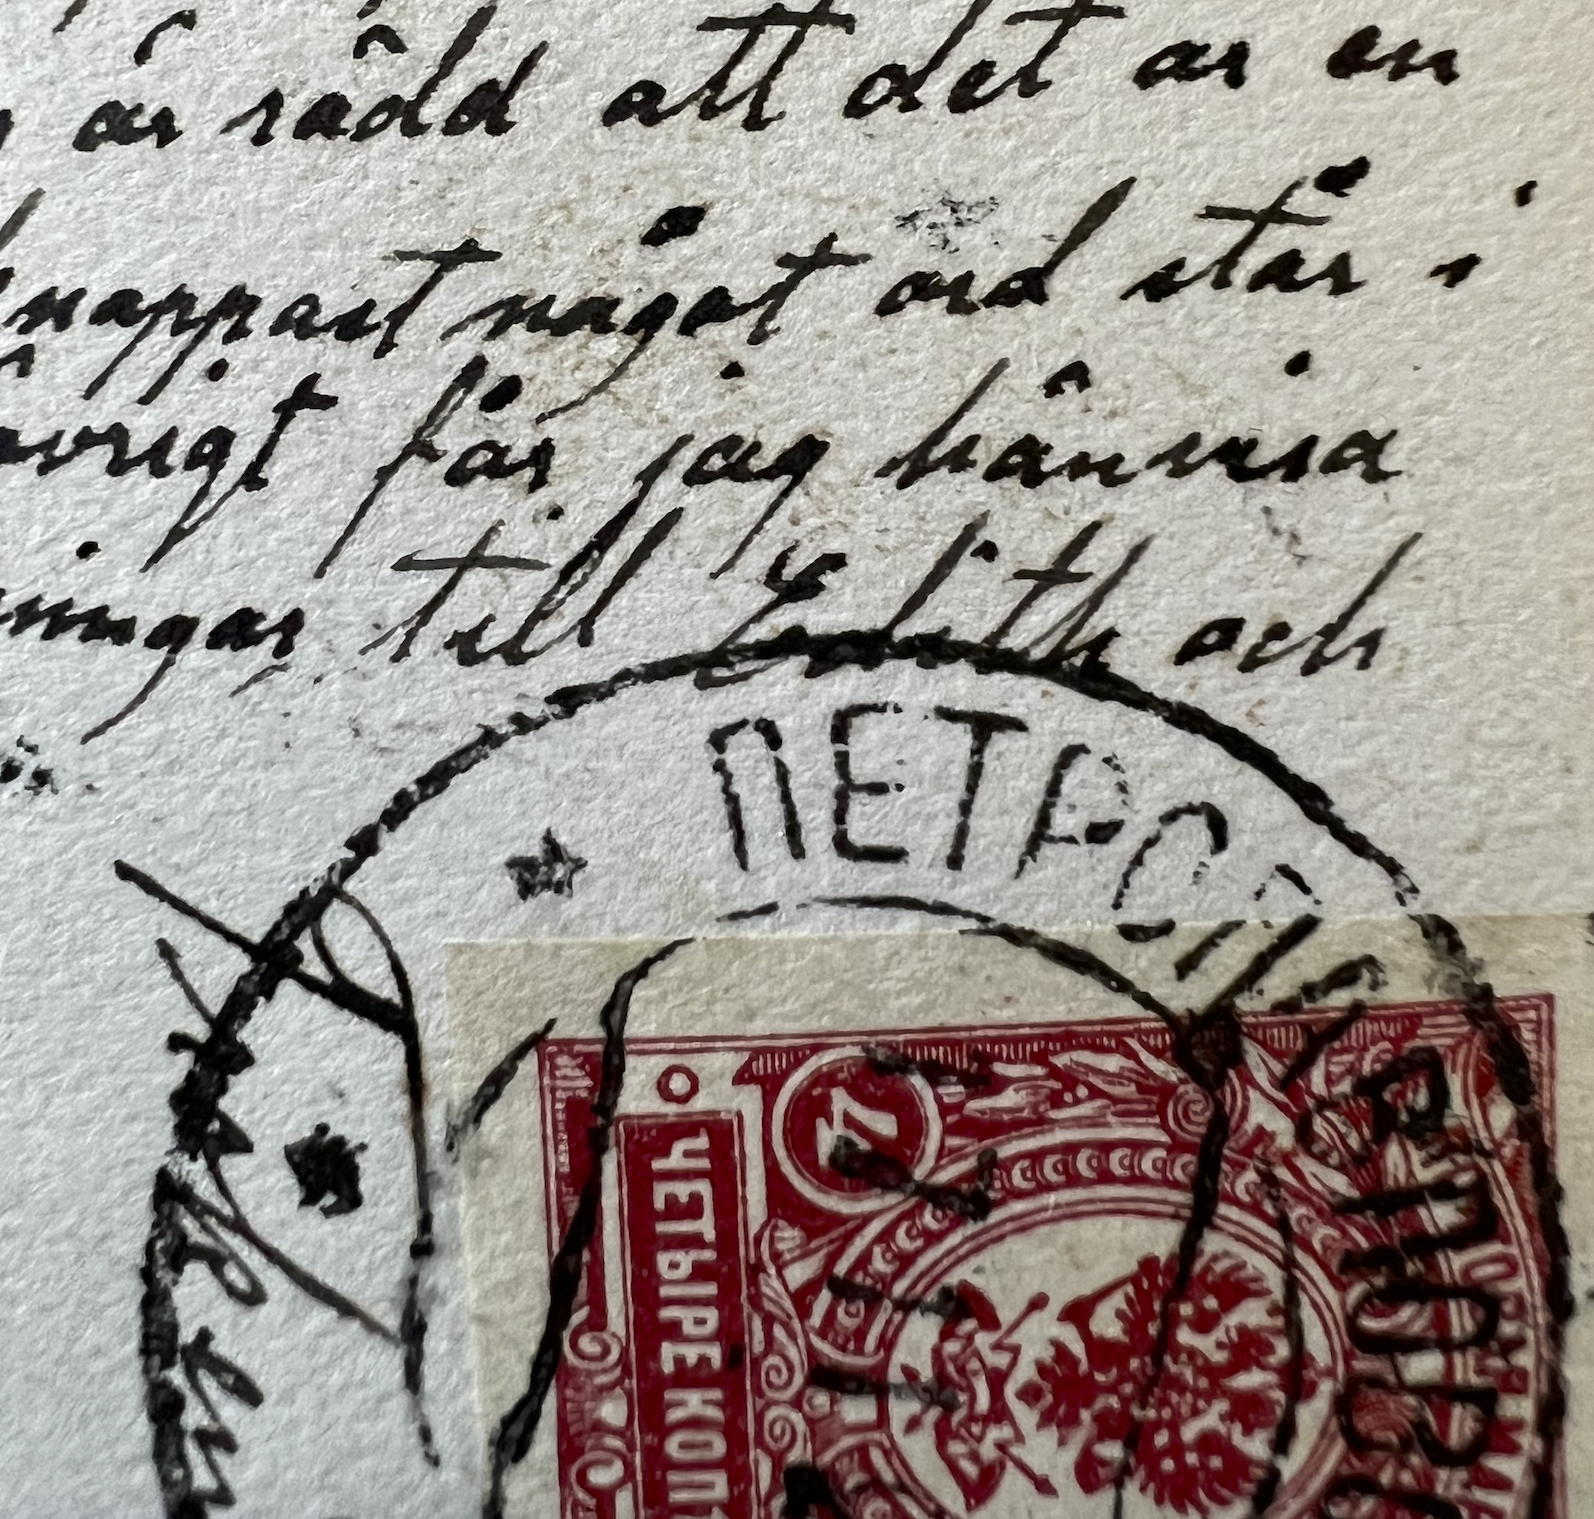 är rädd att det är en
knappast något ord står i
övrigt får jag hänvisa
ningar till Edith och
ПЕТРО
4
ЧЕТЫРЕ КОП